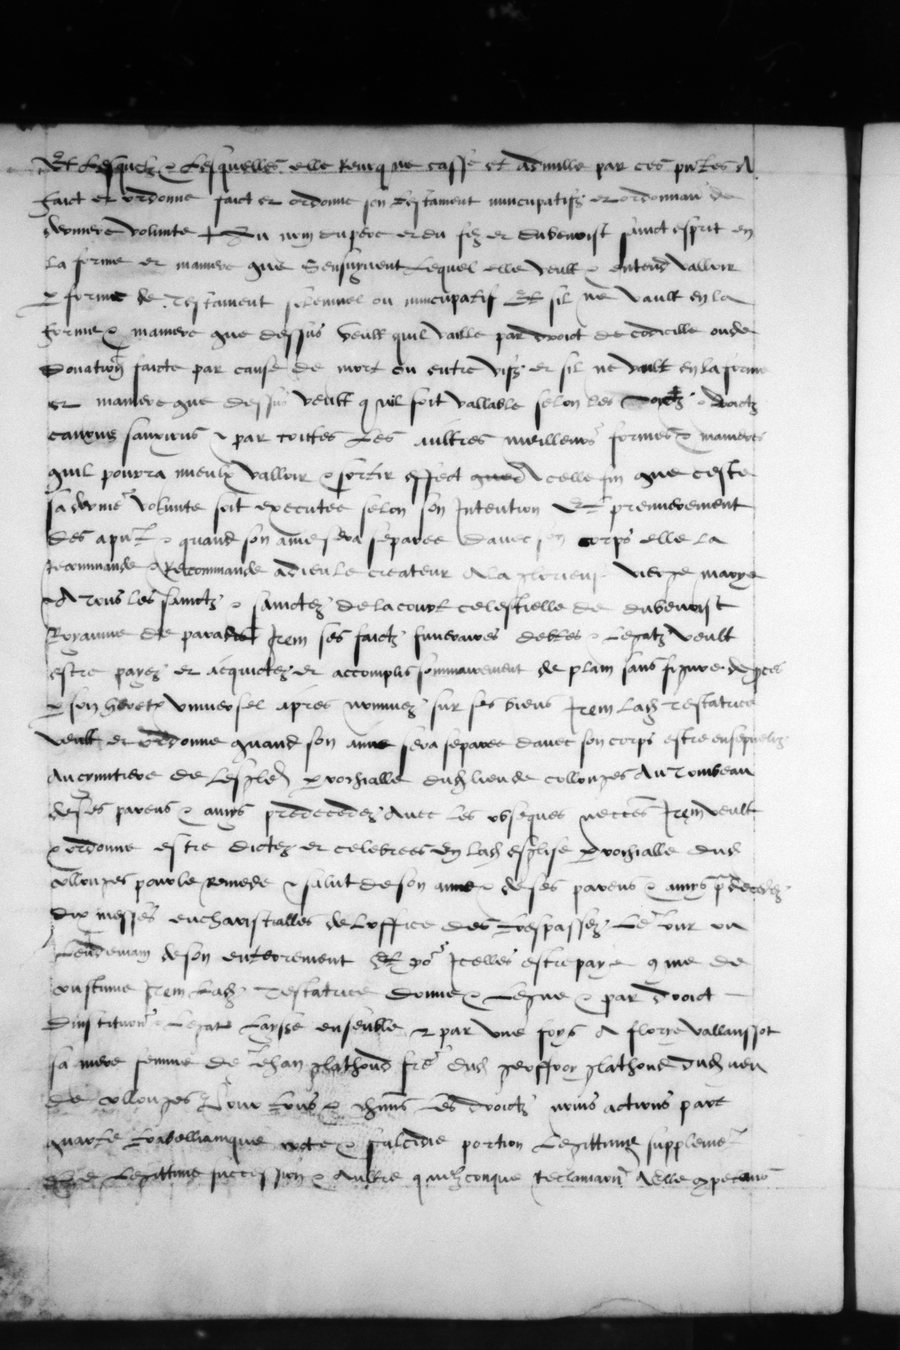 Et lesquelz & lesquelles elle revoque casse et adnulle par ces pntes A
faict et ordonne faict et ordonne son testament nuncupatifz et ordonnan de
derniere volunte + Au nom du pere et du filz et du benoist sainct esprit en
la forme et maniere que sensuyvent Lequel elle veult & entend valloir
p forme de testament solemnel ou nuncupatif Et sil ne vault en la
forme & maniere que dessus veult quil vaille par droict de codicille ou de
donation faicte par cause de mort ou entre vifz et sil ne vault en la forme
et maniere que dessus veult quil soit vallable selon les droictz
canons & par toutes les aultres meilleurs formes & manieres
quil pourra mieulx valloir & sortir effect A celle fin que ceste
sa dernie volunte soit executee selon son Intention Et premierement
des a pnt & quand son ame sera separee davec son corps elle la
recommande & Recommande a dieu le createur A la glorieuse vierge marye
& A tous les sainctz & sainctes de la court celestielle de du benoist
Royaume de paradis Item ses faictz funeraires debtes & legatz veult
estre payez et acquictez et accomplis sommairement de plain sans figure de pces
p son herete universel apres nommez sur ses biens Item lad testatrice
veult et ordonne quand son ame sera separee davec son corps estre ensepvelir
Au cymitiere de lesglise parrochialle dud lieu de collonges Au tombeau
de ses parens & amys predecedez Avec les obseques neccess Item veult
& ordonne estre dictes et celebrees en lad esglise parrochialle dud
collonges pour le remede & salut de son ame & de ses parens & amys pdecedez
dix messes de loffice des trespassez Le jour ou
lendemain de son enterrement Et por Icelles estre paye come de
coustume Item lad testatrice donne & legue & par droict
dinstitution & legat laysse ensemble & par une foys A
sa mere femme de Jehan glathoud dud geoffroy glathoud dud lieu
de collonges pour tous & chuns les droictz noms actions part
quarte trabellianique & falcidie portion legittime supplement
de legittime succession & aultre quelzconque reclamation A elle